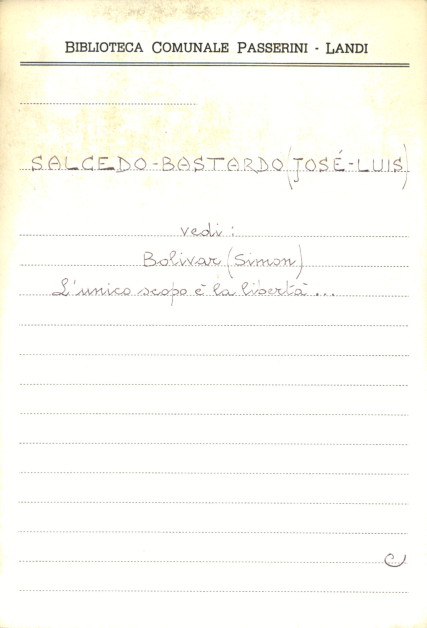 BIBLIOTECA COMUNALE PASSERINI - LANDI
SALCEDO-BASTARDO (JOSÉ-LUIS)
vedi:
Bolivar (Simon)
L'unico scopo è la libertà...